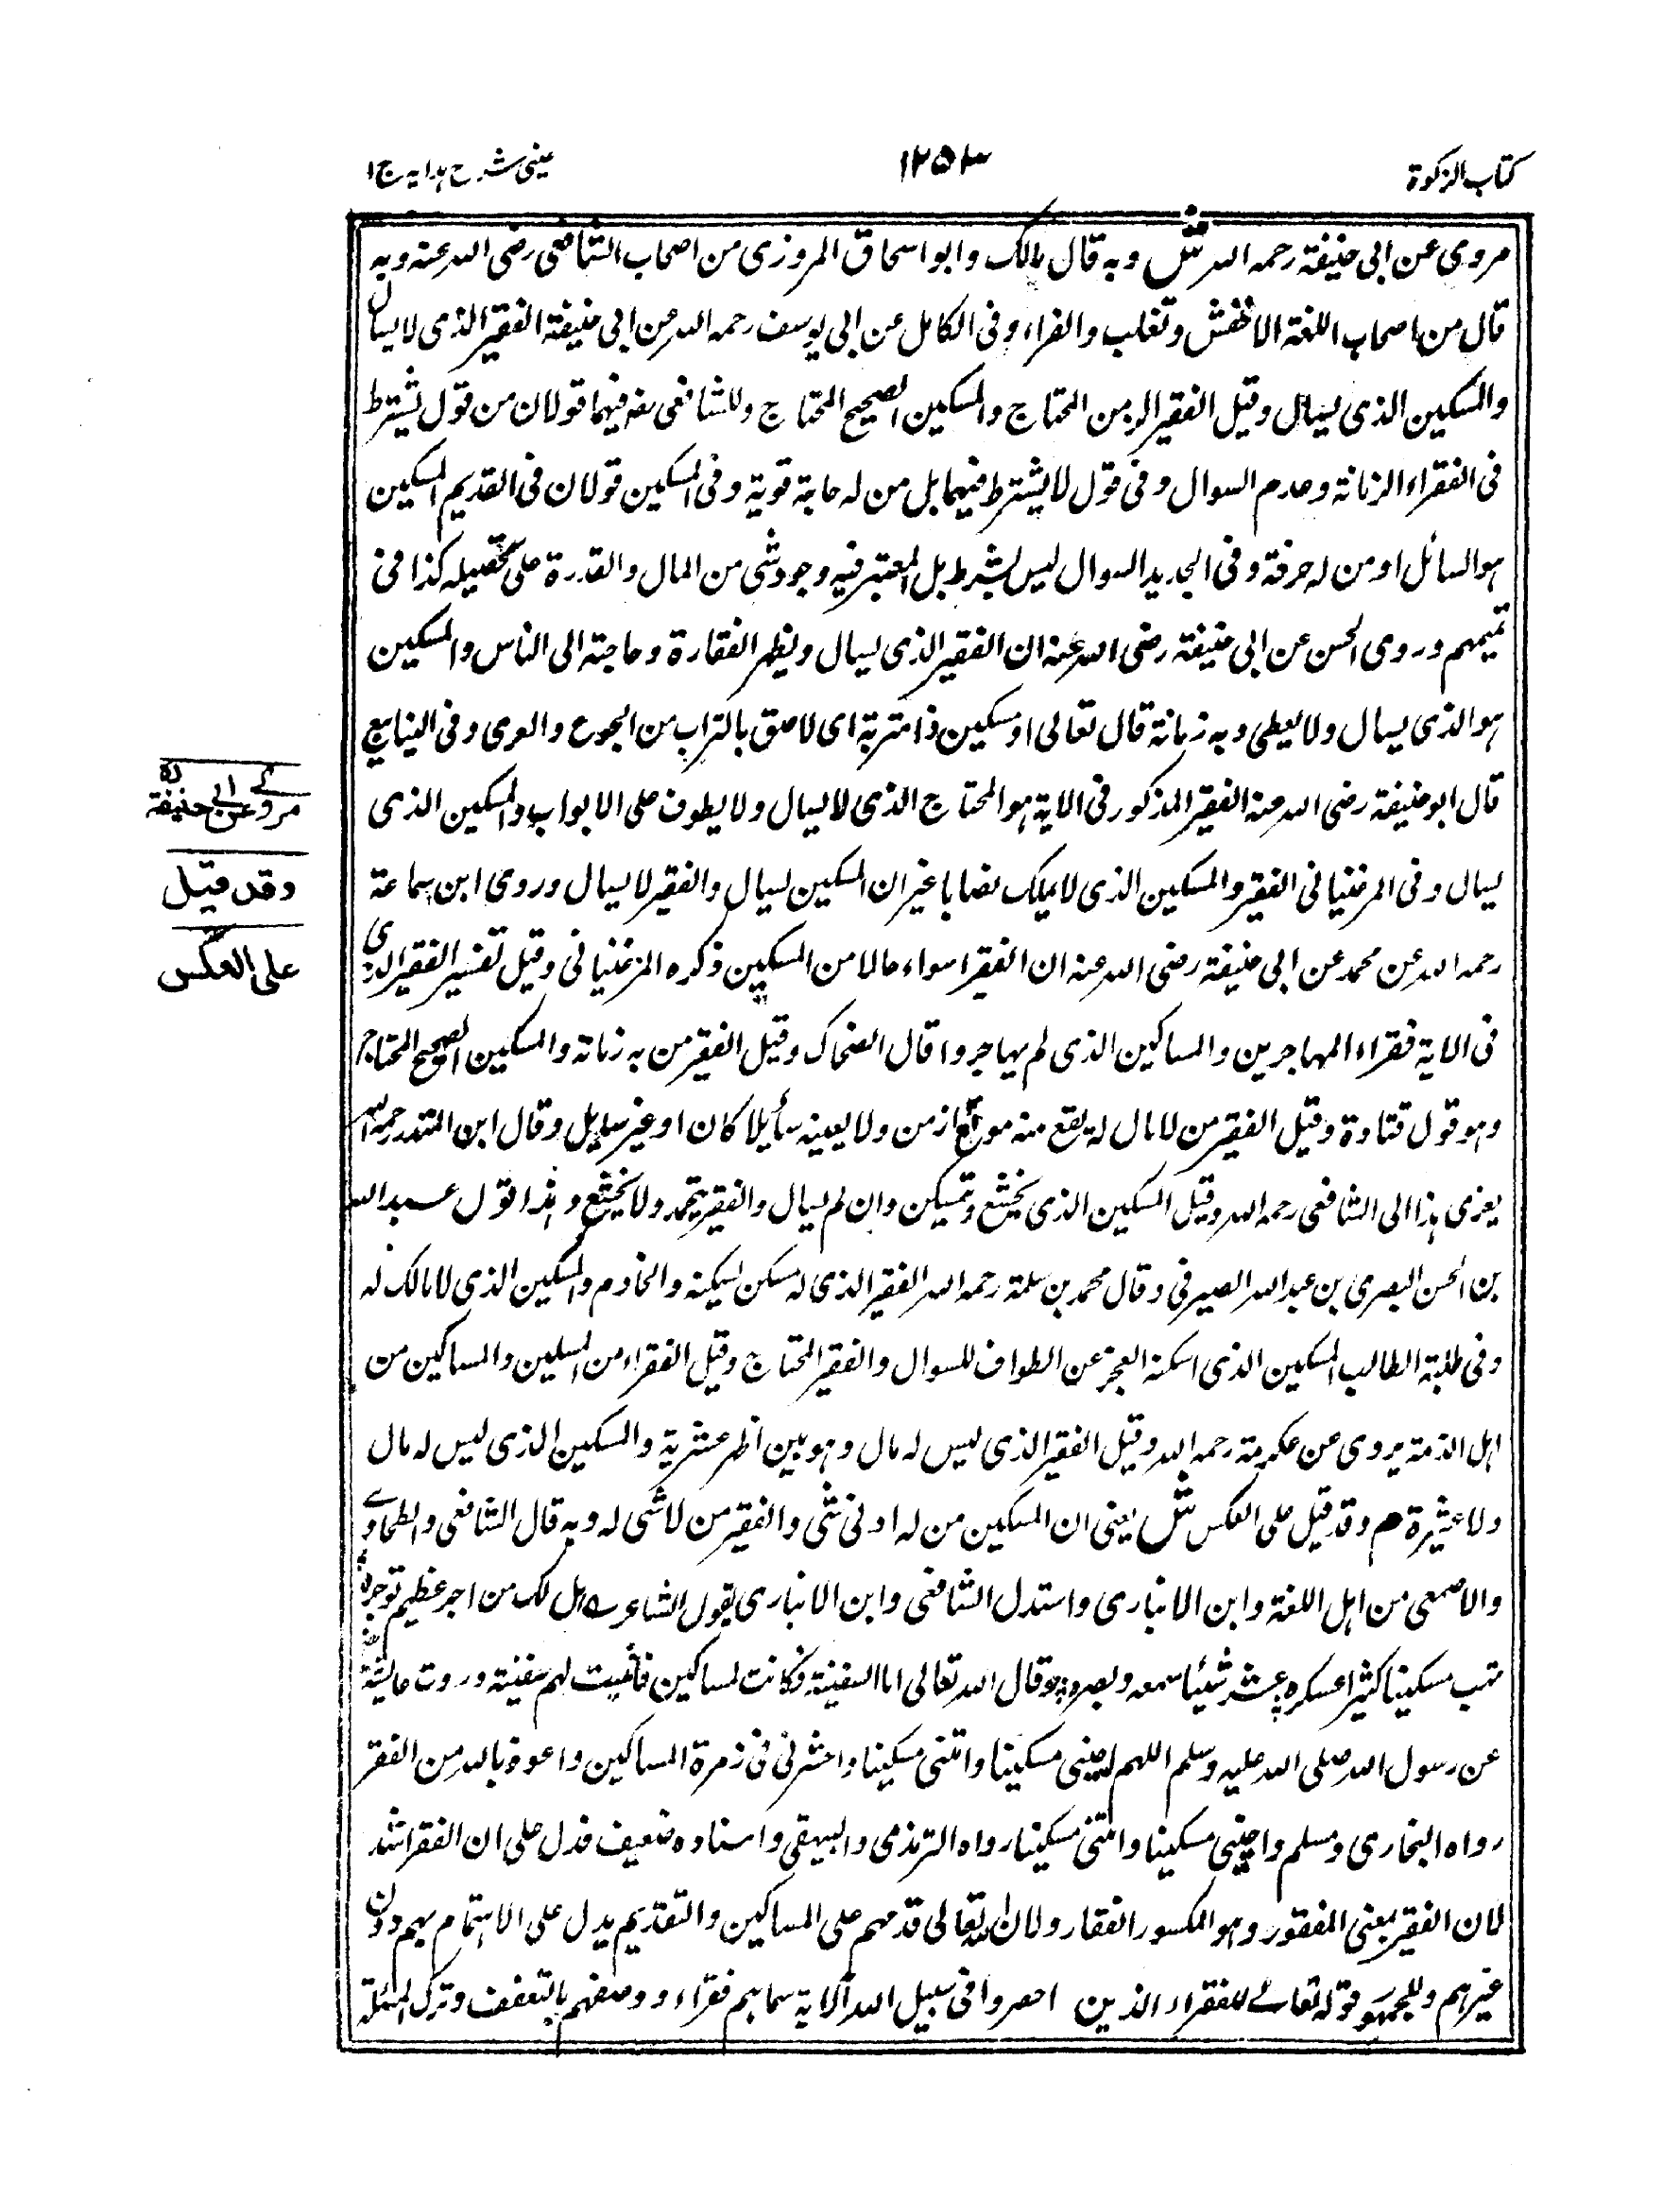 كتاب الزكوة
١٢٥٣
عينى شرح هدايه ج١
مروى عن ابى حنيفة رحمه الله ش وبه قال مالك وابو اسحاق المروزى من اصحاب الشافعى رضى الله عنه وبه
قال من اصحاب اللغة الاخفش وثعلب والفراء وفى الكامل عن ابى يوسف رحمه الله عن ابى حنيفة الفقير الذى لا يسال
والمسكين الذى يسال وقيل الفقير الزمن المحتاج والمسكين الصحيح المحتاج وللشافعى فيهما قولان من قول يشترط
فى الفقراء الزمانة وعدم السوال وفى قول لا يشترط فيهما بل من له حاجة قوية وفى المسكين قولان فى القديم المسكين
هو السائل او من له حرفة وفى الجديد السوال ليس بشرط بل المعتبر فيه وجود شى من المال والقدرة على تحصيله كذا فى
تميمهم وروى الحسن عن ابى حنيفة رضى الله عنه ان الفقير الذى يسال ويظهر افتقاره وحاجته الى الناس والمسكين
هو الذى يسال ولا يعطى وبه زمانة قال تعالى او مسكين ذا متربة اى لاصق بالتراب من الجوع والعرى وفى الينابيع
قال ابو حنيفة رضى الله عنه الفقير المذكور فى الاية هو المحتاج الذى لا يسال ولا يطوف على الابواب والمسكين الذى
يسال وفى المرغنيانى الفقير والمسكين الذى لا يملك نصابا غير ان المسكين يسال والفقير لا يسال وروى ابن سماعة
رحمه الله عن محمد عن ابى حنيفة رضى الله عنه ان الفقير اسواء حالا من المسكين ذكره المرغنيانى وقيل تفسير الفقير الذى
فى الاية فقراء المهاجرين والمساكين الذى لم يهاجروا قال الضحاك وقيل الفقير من به زمانة والمسكين الصحيح المحتاج
وهو قول قتادة وقيل الفقير من لا مال له يقع منه موقعا زمن ولا يعينه سأيلا كان او غير سايل وقال ابن المنذر رحمه الله
يعزى هذا الى الشافعى رحمه الله وقيل المسكين الذى يخشع وتمسكن وان لم يسال والفقير يتحمد ولا يخشع وهذا قول عبد الله
بن الحسن البصرى بن عبد الله الصيرفى وقال محمد بن سلمة رحمه الله الفقير الذى له مسكن يسكنه والخادم والمسكين الذى لا مالك له
وفى طلبة الطالب المسكين الذى اسكنه العجز عن الطواف للسوال والفقير المحتاج وقيل الفقراء من المسلمين والمساكين من
اهل الذمة يروى عن عكرمة رحمه الله وقيل الفقير الذى ليس له مال وهو بين اظهر عشريته والمسكين الذى ليس له مال
ولا عشيرة م وقد قيل على العكس ش يعنى ان المسكين من له ادنى شى والفقير من لا شى له وبه قال الشافعى والطحاوى
والاصمعى من اهل اللغة وابن الانبارى واستدل الشافعى وابن الانبارى بقول الشاعر هل لك من اجر عظيم توجره
مسكينا كثيرا عسكره عشر شيئا سمعه وبصره وقال الله تعالى اما السفينة فكانت لمساكين فاثبت لهم سفينة وروت عايشة
عن رسول الله صلى الله عليه وسلم اللهم احينى مسكينا وامتنى مسكينا واحشرنى فى زمرة المساكين واعوذ بالله من الفقر
رواه البخارى ومسلم واحينى مسكينا وامتنى مسكينا رواه الترمذى والبيهقى واسناده ضعيف فدل على ان الفقر اشد
لان الفقير بمعنى المفقور وهو المكسور الفقار ولان الله تعالى قدمهم على المساكين والتقديم يدل على الاهتمام بهم دون
غيرهم وللجمهور قوله تعالى للفقراء الذين احصروا فى سبيل الله الاية سماهم فقراء ووصفهم بالتعفف وترك المسئلة
مروى عن ابى حنيفة رح
وقد قيل
على العكس